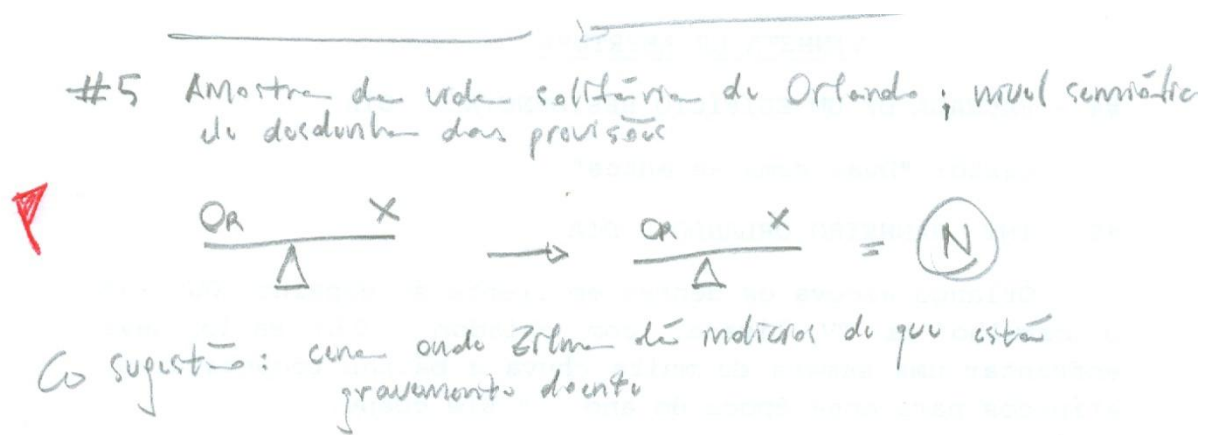 #5 Amostra da vida solitária de Orlando; nível semiótic
do desdenha das provisões
OR X → OR X = N
Δ Δ
↳ sugestão: cena onde Zilma dá indícios de que está
gravemente doente